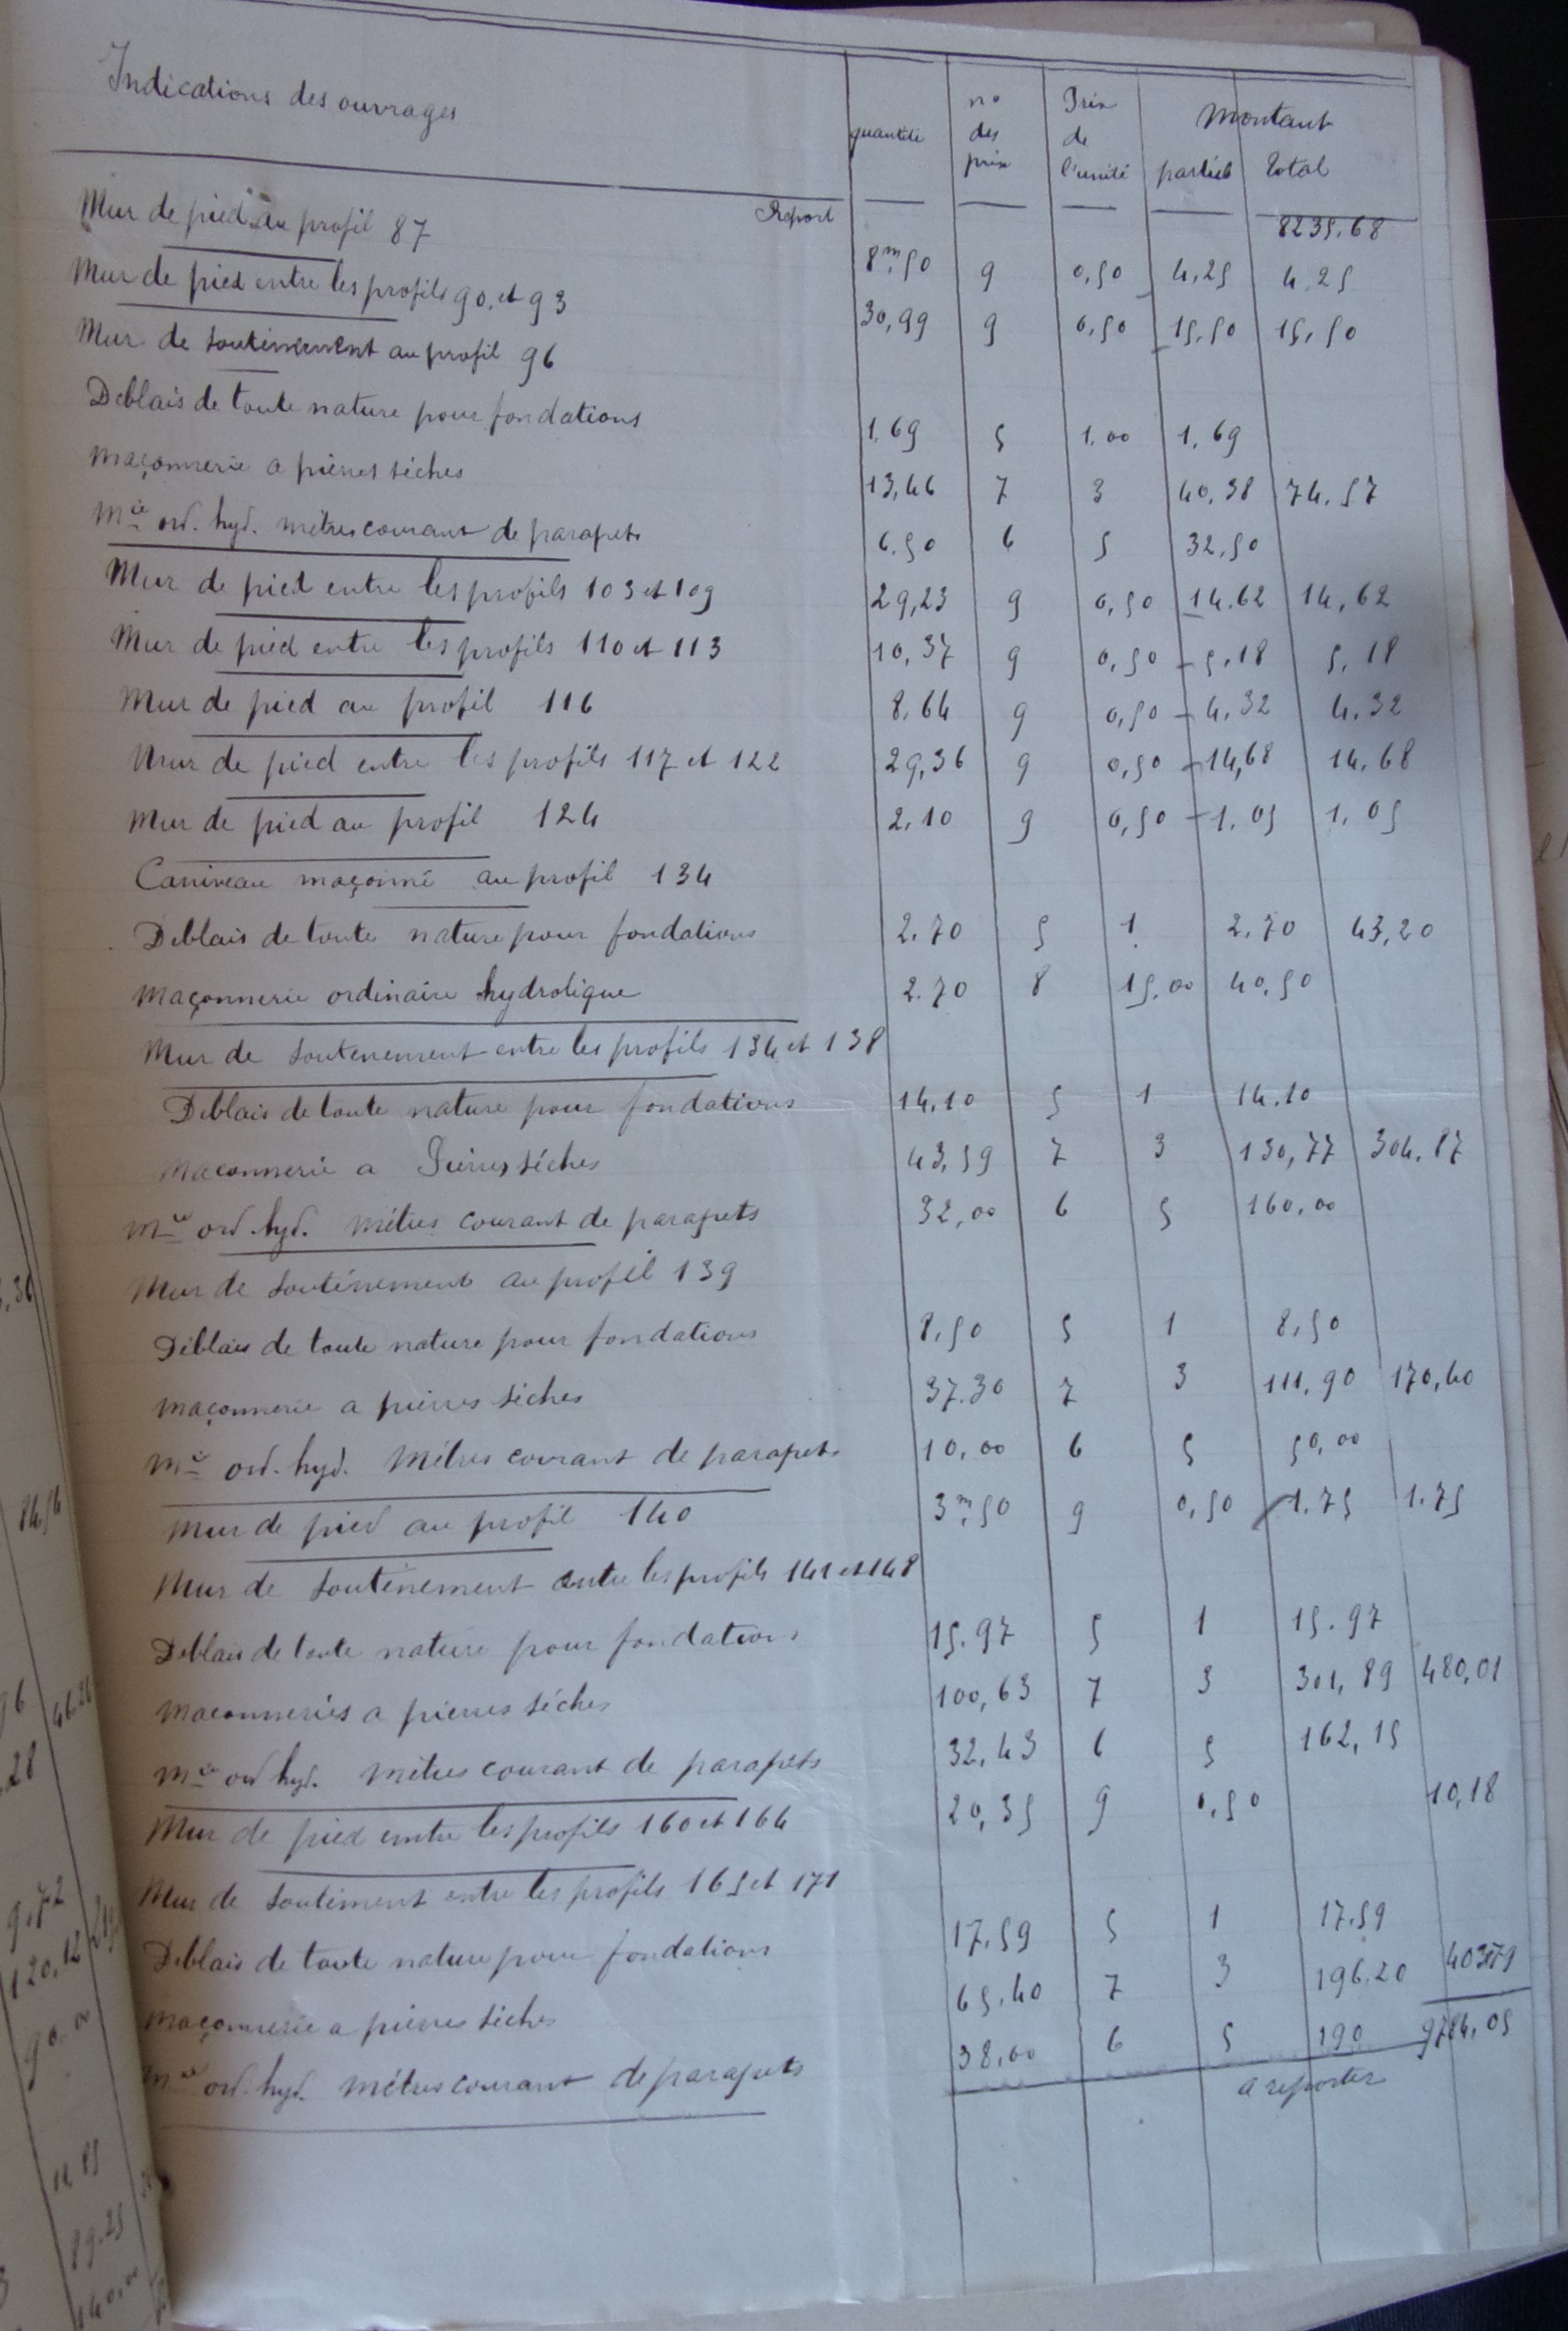 Indications des ouvrages quantité no des prix Prix de l'unité Montant partiel total
Report 8235.68
Mur de pied au profil 87 8m,50 9 0,50 4,25 4,25
Mur de pied entre les profils 90, et 93 30,99 9 0,50 15,50 15,50
Mur de soutènement au profil 96
Deblais de toute nature pour fondations 1,69 5 1,00 1,69
Maçonnerie a pierres séches 13,46 7 3 40,38 74,57
Mie ord. hyd. métres courant de parapets 6.50 6 5 32,50
Mur de pied entre les profils 103 et 109 29,23 9 0,50 14.62 14,62
Mur de pied entre les profils 110 et 113 10,37 9 0,50 5,18 5,18
Mur de pied au profil 116 8,64 9 0,50 4,32 4,32
Mur de pied entre les profils 117 et 122 29,36 9 0,50 14,68 14,68
Mur de pied au profil 124 2,10 9 0,50 1,05 1,05
Caniveau maçonné au profil 134
Deblais de toute nature pour fondations 2.70 5 1 2.70 43,20
Maçonnerie ordinaire hydrolique 2.70 8 15,00 40,50
Mur de soutenement entre les profils 134 et 138
Deblais de toute nature pour fondations 14,10 5 1 14.10
Maconnerie a Pierres séches 43,59 7 3 130,77 304,87
Mie ord. hyd. métres courant de parapets 32,00 6 5 160,00
Mur de soutènement au profil 139
Déblais de toute nature pour fondations 8,50 5 1 8,50
Maçonnerie a pierres séches 37.30 7 3 111,90 170,40
Mie ord. hyd. Métres courant de parapets 10,00 6 5 50,00
Mur de pied au profil 140 3m,50 9 0,50 1.75 1.75
Mur de soutènement entre les profils 141 et 148
Deblais de toute nature pour fondations 15.97 5 1 15.97
Maconneries a pierres séches 100,63 7 3 301,89 480,01
Mie ord hyd. métres courant de parapets 32,43 6 5 162,15
Mur de pied entre les profils 160 et 164 20,35 9 0,50 10,18
Mur de soutement entre les profils 165 et 171
Deblais de toute nature pour fondations 17,59 5 1 17.59
Maçonnerie a pierres séches 65.40 7 3 196.20
Mie ord. hyd. métres courant de parapets 38,00 6 5 190 9784,05
a reporter